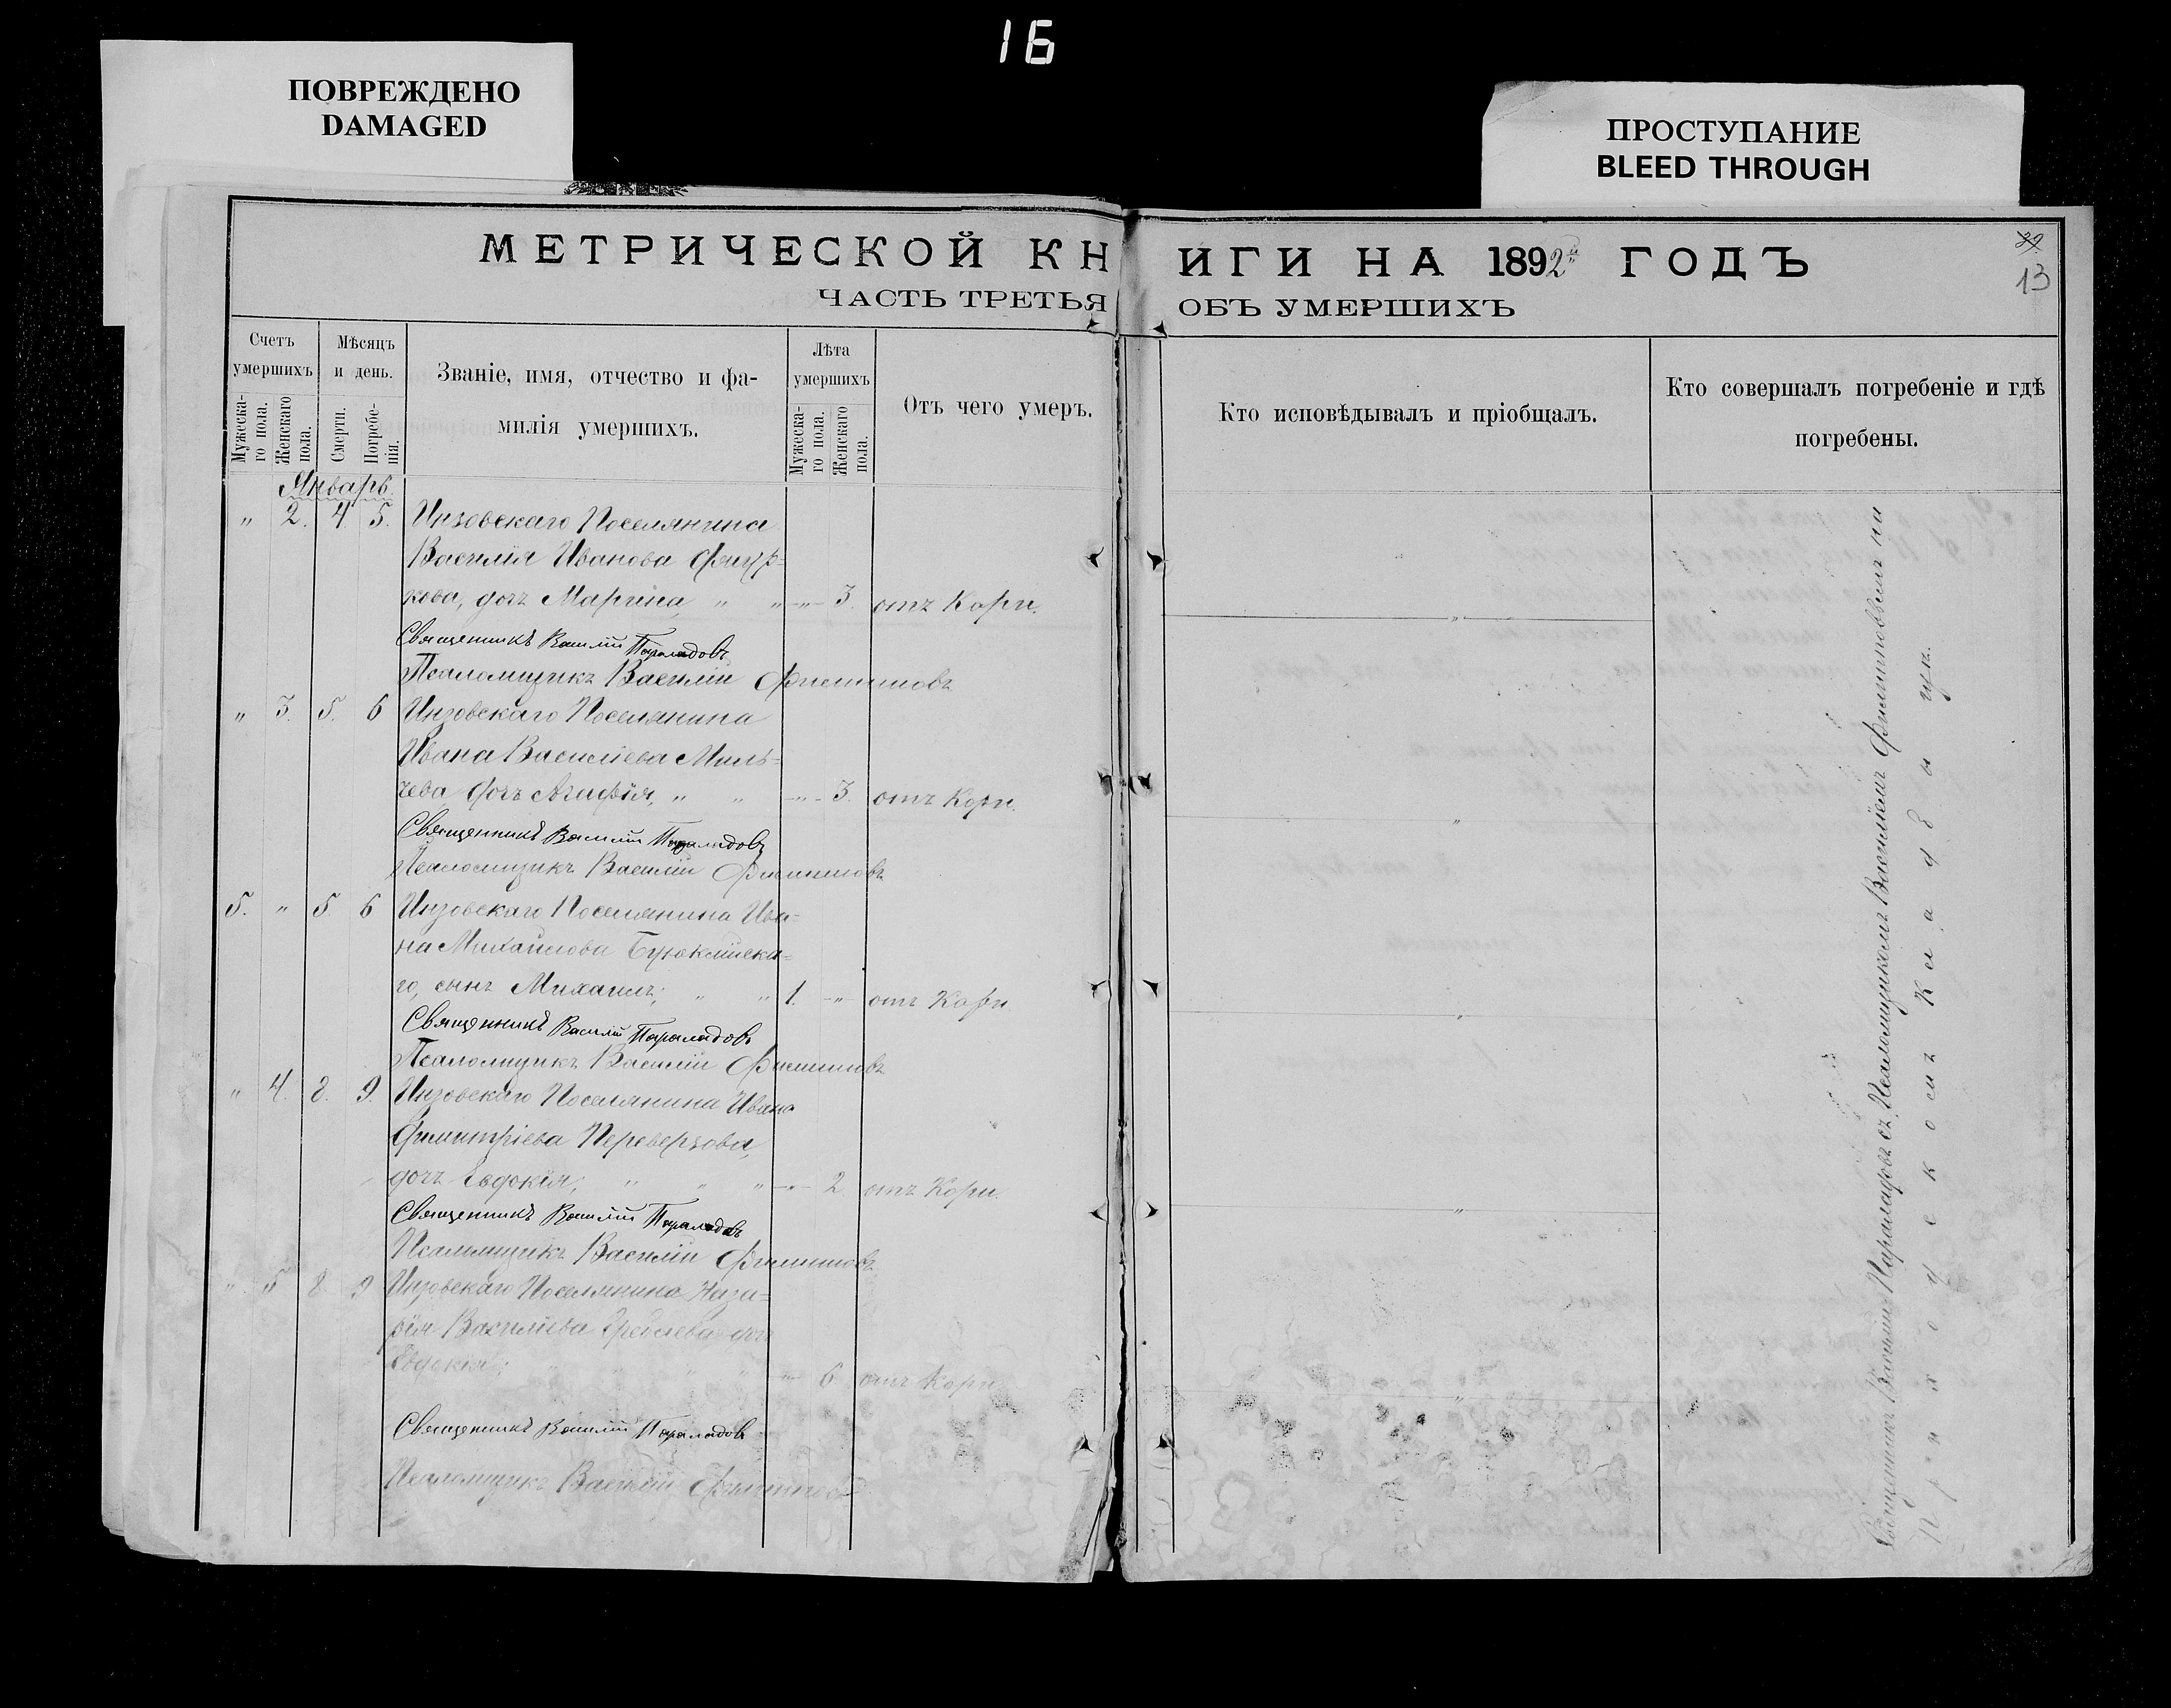 16
ПОВРЕЖДЕНО
DAMAGED
ПРОСТУПАНИЕ
BLEED THROUGH
МЕТРИЧЕСКОЙ КНИГИ НА 1892й ГОДЪ
ЧАСТЬ ТРЕТЬЯ ОБЪ УМЕРШИХЪ
29
13
Счетъ умершихъ
Мужеска-
го пола.
Женскаго
пола.
Мѣсяцъ и день.
Смерти.
Погребе-
нія.
Званіе, имя, отчество и фа-
милія умершихъ.
Лѣта умершихъ
Мужеска-
го пола.
Женскаго
пола.
Отъ чего умеръ.
Кто исповѣдывалъ и пріобщалъ.
Кто совершалъ погребеніе и гдѣ
погребены.
Январь.
" 2. 4 5. Инзовскаго Поселянина
Василія Иванова
кова, дочь Марина " " " 3. отъ Кори. "
Священникъ Василій Параладовъ
Псаломщикъ Василій Филипповъ
" 3. 5. 6 Инзовскаго Поселянина
Ивана Василіева Миль=
чева дочь Агафія, " " " 3. отъ Кори. "
Священникъ Василій Параладовъ
Псаломщикъ Василій Филипповъ
5. " 5 6 Инзовскаго Поселянина Ива=
на Михайлова Буюклійска=
го, сынъ Михаилъ; " " 1. " отъ Кори "
Священникъ Василій Параладовъ
Псаломщикъ Василій Филипповъ
" 4. 8. 9. Инзовскаго Поселянина Ивана
Димитріева Переверзова,
дочь Евдокія; " " " " 2 отъ Кори. "
Священникъ Василій Параладовъ
Псаломщикъ Василій Филипповъ
" 5 8 9 Инзовскаго Поселянина Наза=
рія Василіева дочь
Евдокія; " 6 отъ Кори "
Священникъ Василій Параладовъ
Псаломщикъ Василій Филипповъ
Священникъ Василій Параладовъ съ Псаломщикомъ Василіемъ Филипповымъ на
Приходскомъ Кладбищѣ.